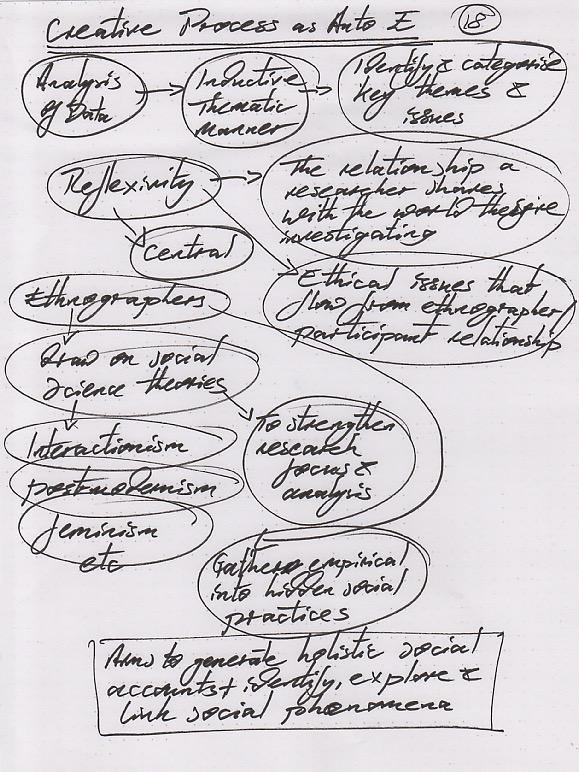 Creative Process as Auto E 18
Analysis
of Data
Inductive
Thematic
Manner
Identify & categorise
key themes &
issues
Reflexivity
The relationship a
researcher shares
with the world they're
investigating
central
Ethical issues that
flow from ethnographer/
participant relationship
Ethnographers
Draw on social
science theories
To strengthen
research
focus &
analysis
Interactionism
postmodernism
feminism
etc
Gather empirical
into hidden social
practices
Aims to generate holistic social
accounts + identify, explore &
link social phenomena